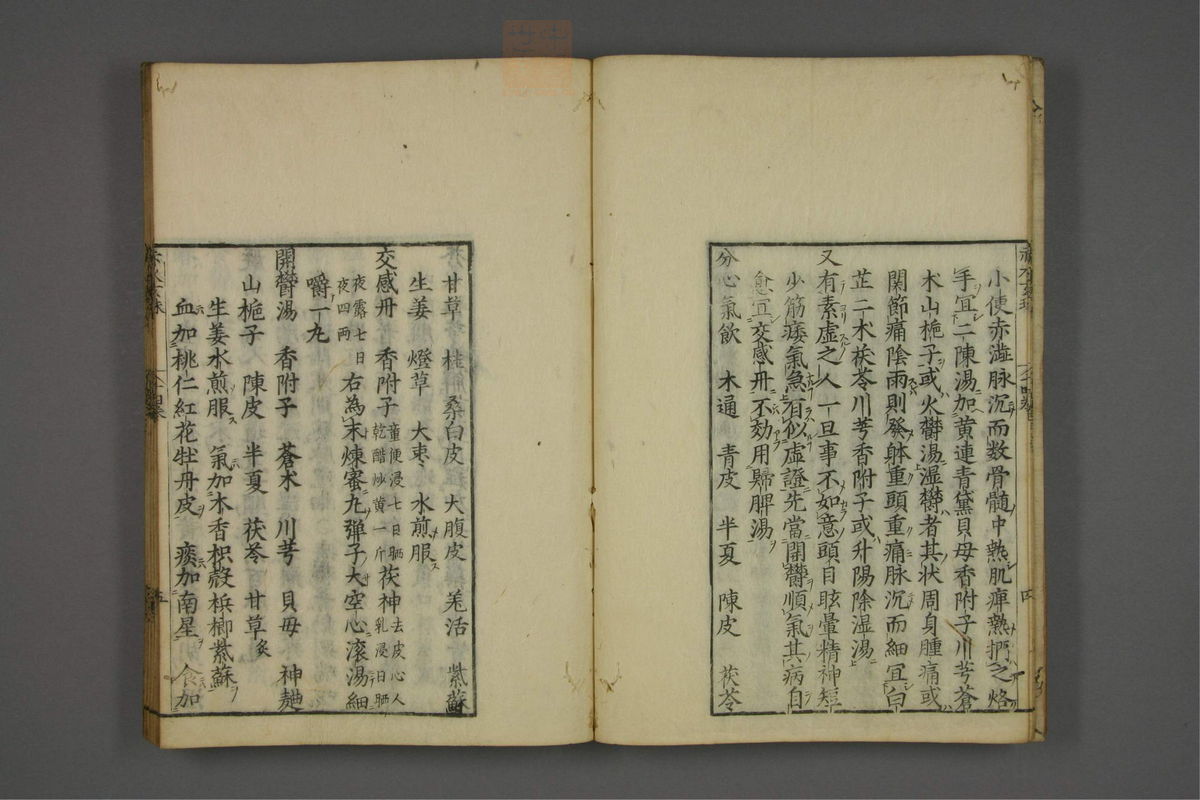 小便赤澁脉沉而数骨髓中熱肌痺熱捫之烙
手宜二陳湯加黄連青黛貝母香附子川芎蒼
木山梔子或火欝湯湿欝者其状周身腫痛或
関節痛陰雨則發躰重頭重痛脉沉而細宜白
芷二木茯苓川芎香附子或升陽除湿湯
又有素虚之人一旦事不如意頭目眩暈精神短
少筋痿氣急有似虚證先當開欝順氣其病自
愈宜交感丹不効用歸脾湯
分心氣飲 木通 青皮 半夏 陳皮 茯苓
甘草 桂 桑白皮 大腹皮 羌活 紫蘇
生姜 燈草 大枣 水煎服
交感丹 香附子 童便浸七日晒乾醋炒黄一斤 茯神 去皮心人乳浸日晒
夜露七日夜四両 右為末煉蜜丸弾子大空心滚湯細
嚼一丸
開欝湯 香附子 蒼术 川芎 貝母 神麯
山梔子 陳皮 半夏 茯苓 甘草炙
生姜水煎服 氣加木香枳殻梹榔紫蘇
血加桃仁紅花牡丹皮 痰加南星 食加
四
五